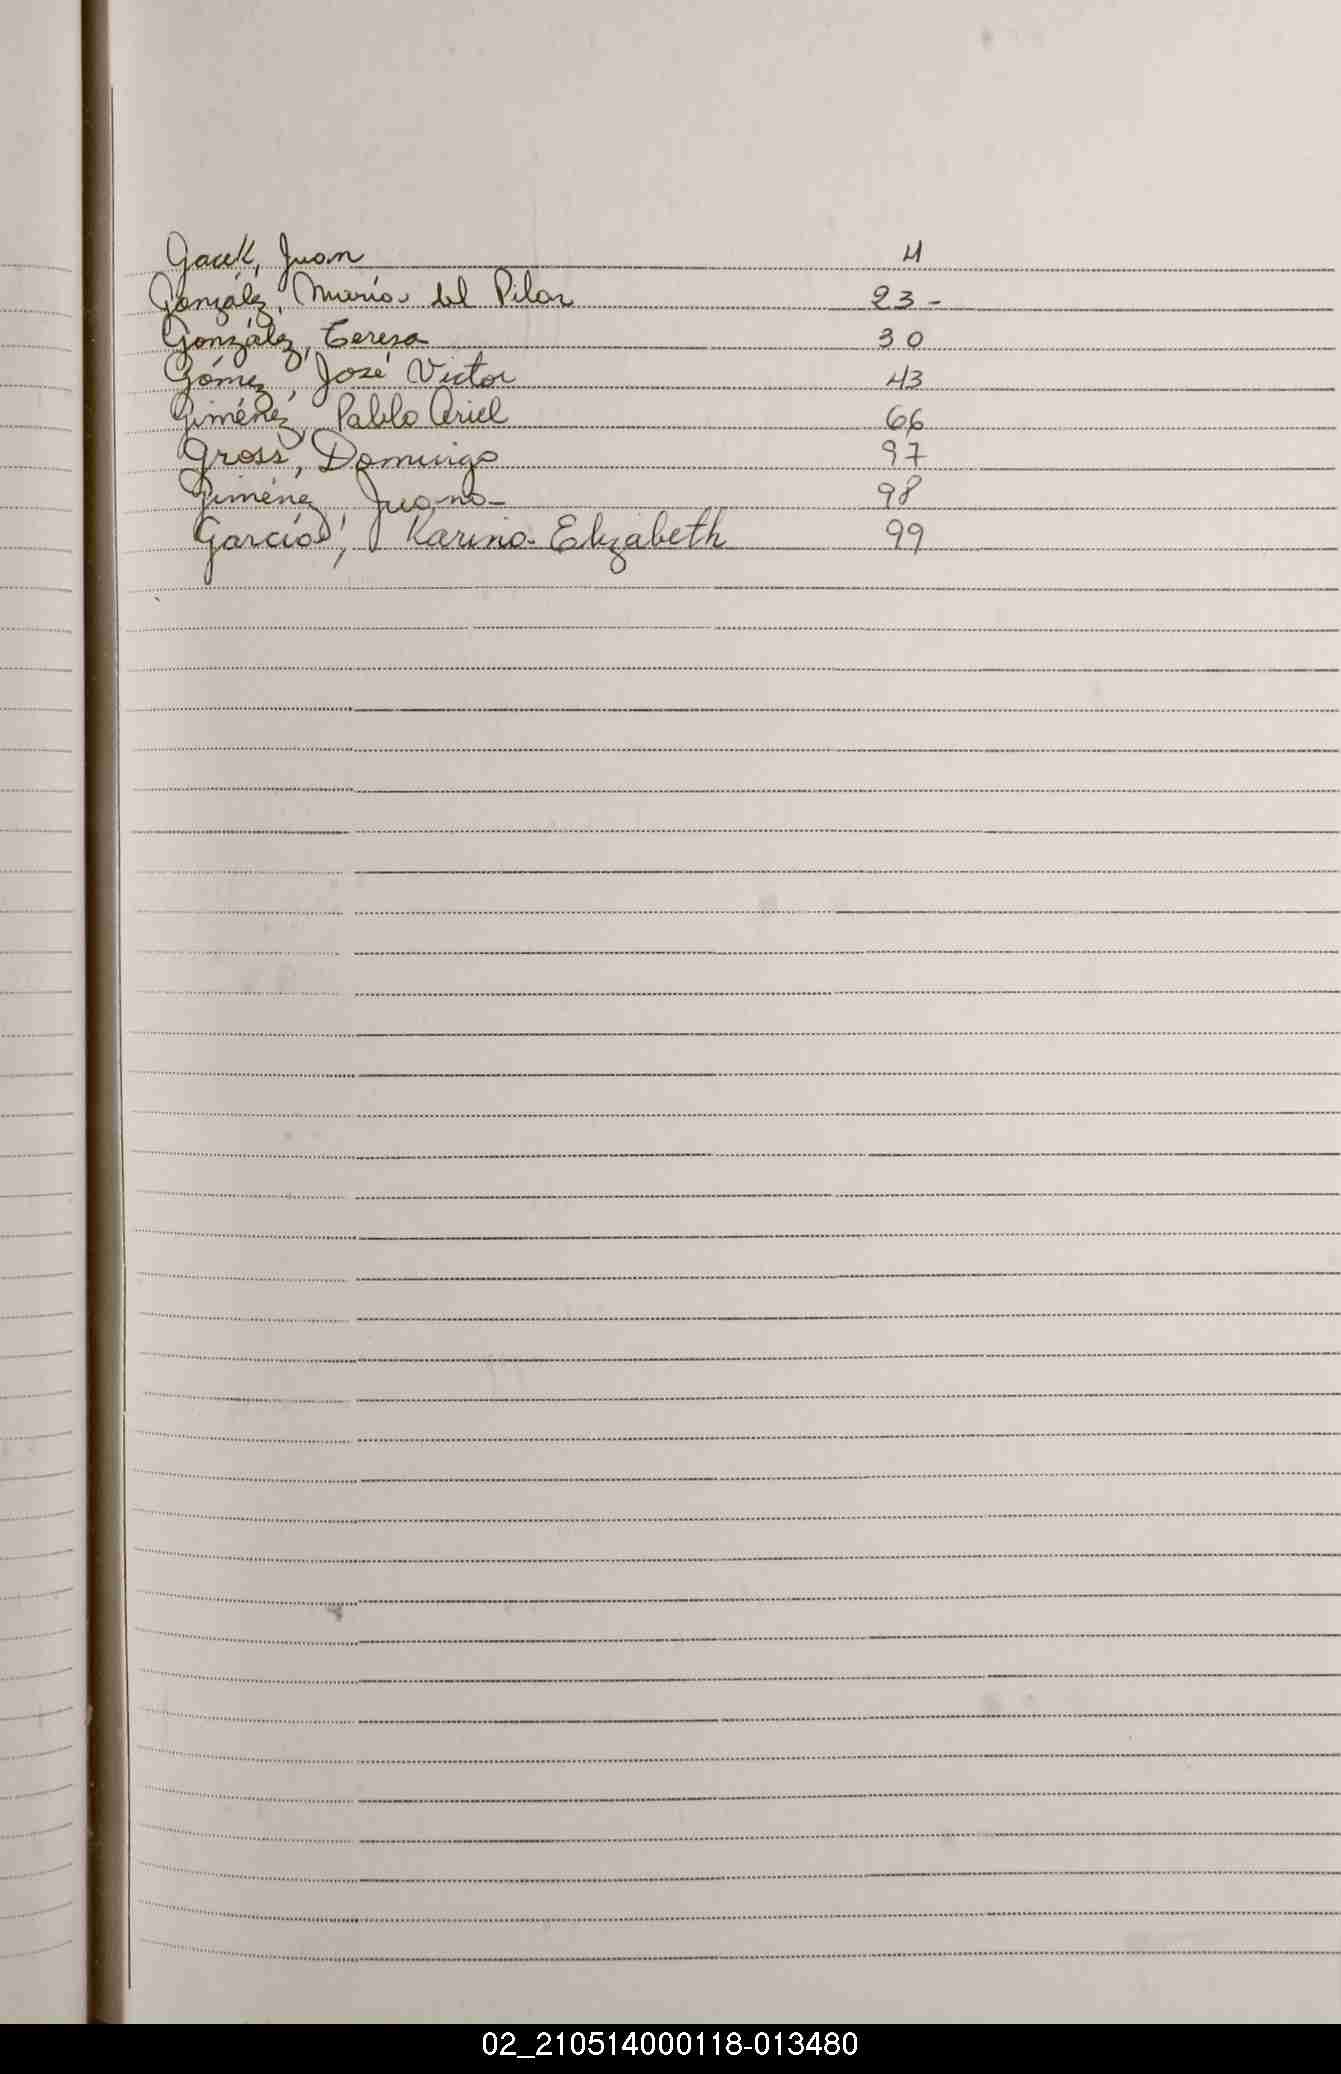 Gauk, Juan 4
González, María del Pilar 23-
González, Teresa 30
Gómez, José Victor 43
Giménez, Pablo Ariel 66
Gross, Domingo 97
Giménez, Juana 98
García, Karina Elizabeth 99
02_210514000118-013480